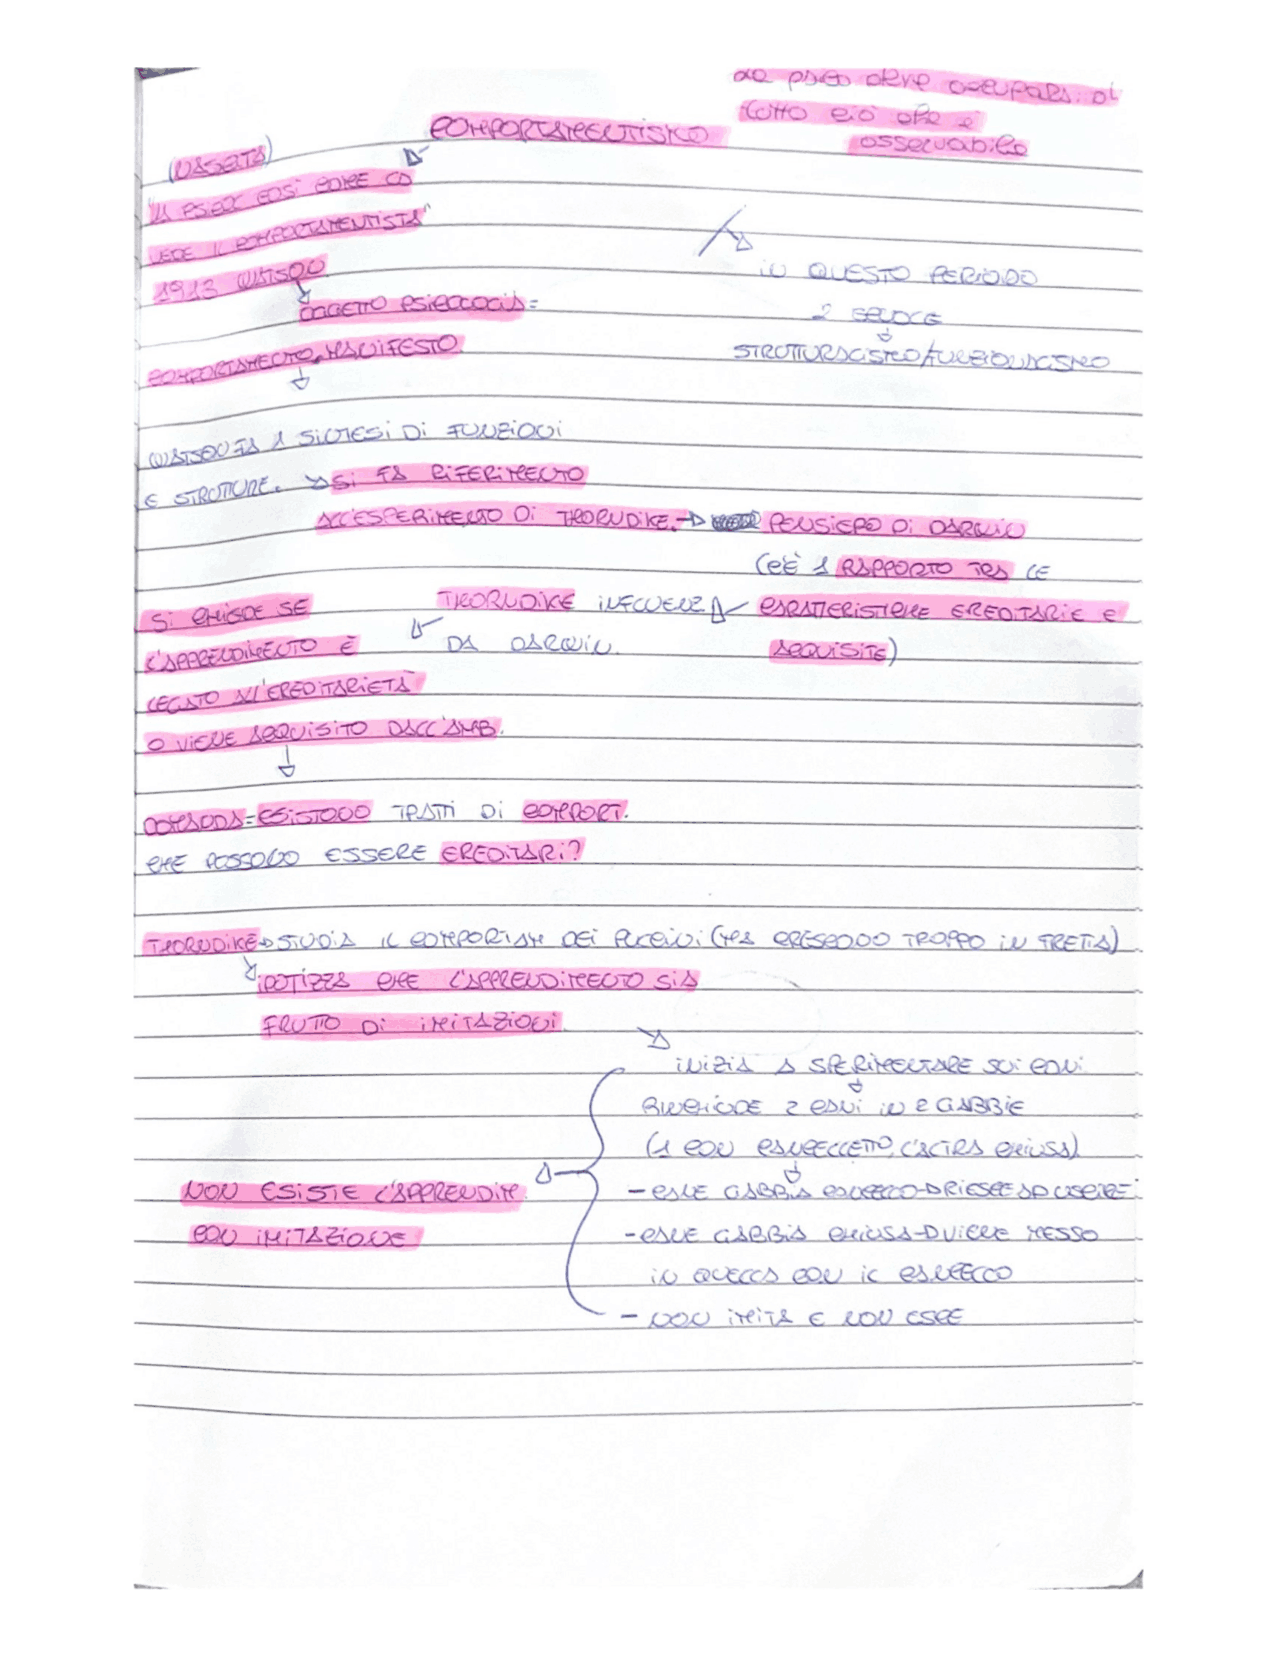 La psico deve occuparsi di
tutto ciò che è
osservabile
COMPORTAMENTISMO
(NASCITA)
"LA PSICO COSì COME LA
VEDE IL COMPORTAMENTISTA"
1913 WATSON
OGGETTO PSICOLOGIA =
COMPORTAMENTO MANIFESTO.
IN QUESTO PERIODO
2 SCUOLE
STRUTTURALISMO/FUNZIONALISMO
WATSON FA 1 SINTESI DI FUNZIONI
E STRUTTURE. → SI FA RIFERIMENTO
ALL'ESPERIMENTO DI THORNDIKE. → PENSIERO DI DARWIN
(C'È 1 RAPPORTO TRA LE
CARATTERISTICHE EREDITARIE E
ACQUISITE)
THORNDIKE INFLUENZ
DA DARWIN.
SI CHIEDE SE
L'APPRENDIMENTO È
LEGATO ALL'EREDITARIETÀ
O VIENE ACQUISITO DALL'AMB.
DOMANDA = ESISTONO TRATTI DI COMPORT.
CHE POSSONO ESSERE EREDITARI?
THORNDIKE → STUDIA IL COMPORTAM DEI PULCINI (MA CRESCONO TROPPO IN FRETTA)
IPOTIZZA CHE L'APPRENDIMENTO SIA
FRUTTO DI IMITAZIONI.
INIZIA A SPERIMENTARE SUI CANI
RINCHIUDE 2 CANI IN 2 GABBIE
(1 CON CANCELLETTO, L'ALTRA CHIUSA)
- CANE GABBIA CANCELLO → RIESCE AD USCIRE
- CANE GABBIA CHIUSA → VIENE MESSO
IN QUELLA CON IL CANCELLO
- NON IMITA E NON ESCE
NON ESISTE L'APPRENDIM
CON IMITAZIONE